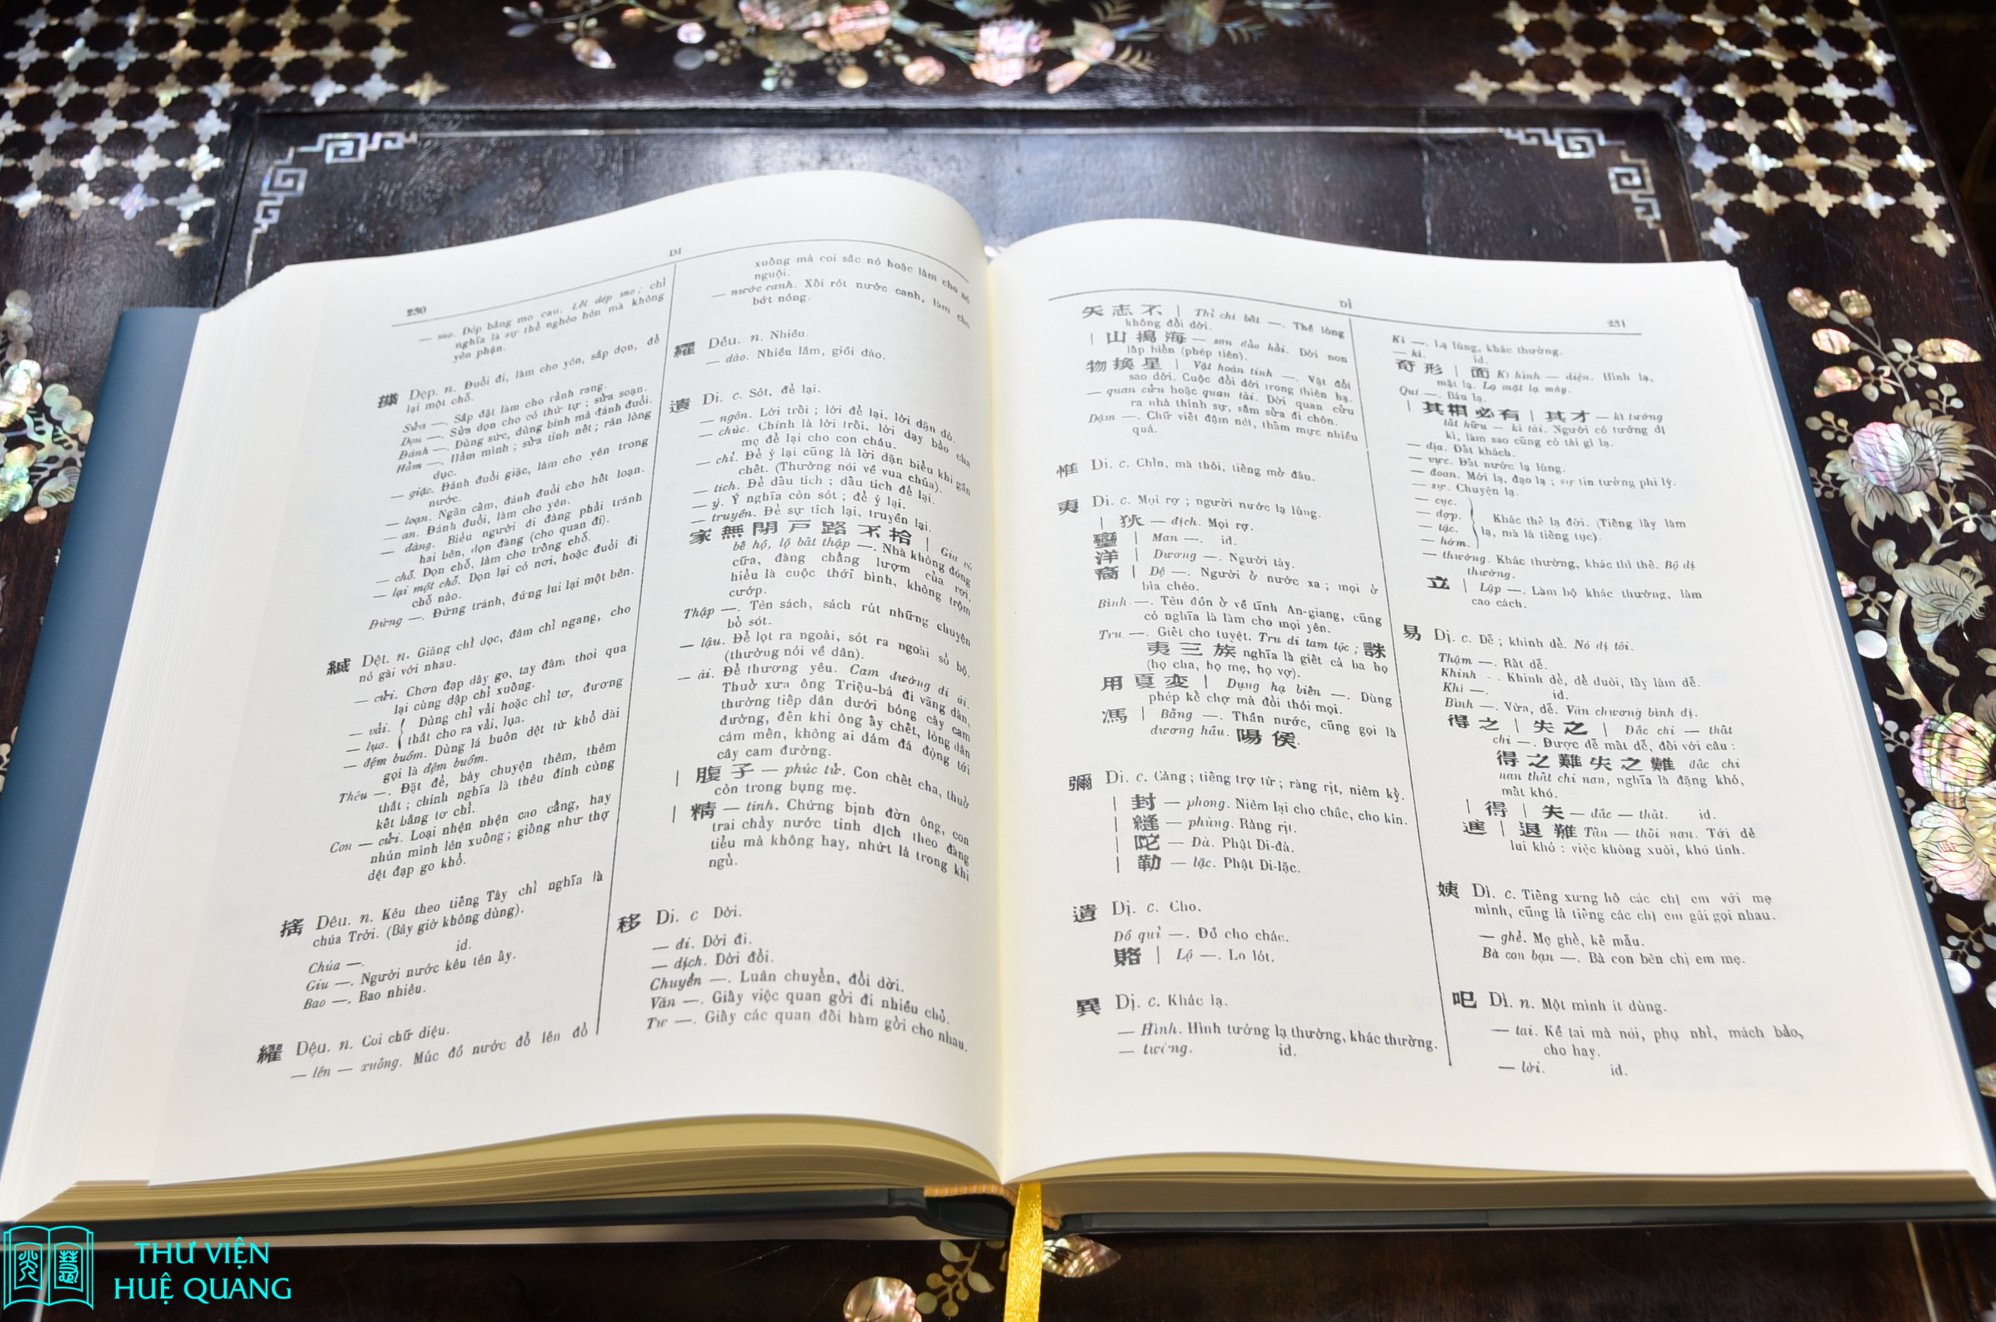 230
DI
— mo. Dép bằng mo cau. Lết dép mo; chỉ
nghĩa là sự thế nghèo hèn mà không
yên phận.
Dẹp. n. Đuổi đi, làm cho yên, sắp dọn, để
lại một chỗ.
Sửa —. Sắp đặt làm cho rảnh rang.
Dọn —. Sửa dọn cho có thứ tự; sửa soạn.
Đánh —. Dùng sức, dùng binh mà đánh đuổi.
Hãm —. Hãm mình; sửa tính nết; răn lòng
dục.
— giặc. Đánh đuổi giặc, làm cho yên trong
nước.
— loạn. Ngăn cấm, đánh đuổi cho hết loạn.
— an. Đánh đuổi, làm cho yên.
— đàng. Biểu người đi đàng phải tránh
hai bên, dọn đàng (cho quan đi).
— chỗ. Dọn chỗ, làm cho trống chỗ.
— lại một chỗ. Dọn lại có nơi, hoặc đuổi đi
chỗ nào.
Đứng —. Đứng tránh, đứng lui lại một bên.
Dệt. n. Giăng chỉ dọc, đâm chỉ ngang, cho
nó gài với nhau.
— cửi. Chơn đạp dây go, tay đâm thoi qua
lại cùng dập chỉ xuống.
— vải. { Dùng chỉ vải hoặc chỉ tơ, đương
— lụa. { thắt cho ra vải, lụa.
— đệm buồm. Dùng lá buôn dệt từ khổ dài
gọi là đệm buồm.
Thêu —. Đặt để, bày chuyện thêm, thêm
thắt; chính nghĩa là thêu đính cùng
kết bằng tơ chỉ.
Con — cửi. Loại nhện nhện cao cẳng, hay
nhún mình lên xuống; giống như thợ
dệt đạp go khổ.
Dêu. n. Kêu theo tiếng Tây chỉ nghĩa là
chúa Trời. (Bây giờ không dùng).
Chúa —. id.
Giu —. Người nước kêu tên ấy.
Bao —. Bao nhiêu.
Dệu. n. Coi chữ diệu.
— lên — xuống. Múc đồ nước đổ lên đổ
xuống mà coi sắc nó hoặc làm cho nó
nguội.
— nước canh. Xối rót nước canh, làm cho
bớt nóng.
Dều. n. Nhiều.
— dào. Nhiều lắm, giỏi dào.
遺 Di. c. Sót, để lại.
— ngôn. Lời trối; lời để lại, lời dặn dò.
— chúc. Chính là lời trối, lời dạy bảo cha
mẹ để lại cho con cháu.
— chỉ. Để ý lại cũng là lời dặn biểu khi gần
chết. (Thường nói về vua chúa).
— tích. Để dấu tích; dấu tích để lại.
— ý. Ý nghĩa còn sót; để ý lại.
— truyền. Để sự tích lại, truyền lại.
家無閉戸路不拾 | Gia vô
bế hộ, lộ bất thập —. Nhà không đóng
cửa, đàng chẳng lượm của rơi,
hiểu là cuộc thới bình, không trộm
cướp.
Thập —. Tên sách, sách rút những chuyện
bỏ sót.
— lậu. Để lọt ra ngoài, sót ra ngoài sổ bộ.
(thường nói về dân).
— ái. Để thương yêu. Cam đường di ái.
Thuở xưa ông Triệu-bá đi vãng dân,
thường tiếp dân dưới bóng cây cam
đường, đến khi ông ấy chết, lòng dân
cảm mến, không ai dám đá động tới
cây cam đường.
| 腹子 — phúc tử. Con chết cha, thuở
còn trong bụng mẹ.
| 精 — tinh. Chứng bịnh đờn ông, con
trai chảy nước tinh dịch theo đàng
tiểu mà không hay, nhứt là trong khi
ngủ.
移 Di. c Dời.
— đi. Dời đi.
— dịch. Dời đổi.
Chuyển —. Luân chuyển, đổi dời.
Văn —. Giấy việc quan gởi đi nhiều chỗ.
Tư —. Giấy các quan đồi hàm gởi cho nhau.
DỈ
231
矢志不 | Thỉ chí bất —. Thề lòng
không đổi dời.
| 山搗海 — san đảo hải. Dời non
lấp biển (phép tiên).
物換星 | Vật hoán tinh —. Vật đổi
sao dời. Cuộc đổi dời trong thiên hạ.
— quan cửu hoặc quan tài. Dời quan cửu
ra nhà thính sự, sắm sửa đi chôn.
Dặm —. Chữ viết đậm nét, thấm mực nhiều
quá.
惟 Di. c. Chỉn, mà thôi, tiếng mở đầu.
夷 Di. c. Mọi rợ; người nước lạ lùng.
| 狄 — địch. Mọi rợ.
蠻 | Man —. id.
洋 | Dương —. Người tây.
裔 | Dệ —. Người ở nước xa; mọi ở
bìa chéo.
Bình —. Tên đồn ở về tỉnh An-giang, cũng
có nghĩa là làm cho mọi yên.
Tru —. Giết cho tuyệt. Tru di tam tộc; 誅
夷三族 nghĩa là giết cả ba họ
(họ cha, họ mẹ, họ vợ).
用夏変 | Dụng hạ biến —. Dùng
phép kẻ chợ mà đổi thói mọi.
馮 | Bằng —. Thần nước, cũng gọi là
dương hầu. 陽侯.
彌 Di. c. Càng; tiếng trợ từ; ràng rịt, niêm kỷ.
| 封 — phong. Niêm lại cho chắc, cho kín.
| 縫 — phùng. Ràng rịt.
| 陀 — Đà. Phật Di-đà.
| 勒 — lặc. Phật Di-lặc.
遺 Dị. c. Cho.
Đồ quỉ —. Đồ cho chác.
賂 | Lộ —. Lo lót.
異 Dị. c. Khác lạ.
— Hình. Hình tướng lạ thường, khác thường.
— tướng. id.
Kì —. Lạ lùng, khác thường.
— kì. id.
奇形 | 面 Kì hình — diện. Hình lạ,
mặt lạ. Lạ mặt lạ mày.
Quí —. Báu lạ.
| 其相必有 | 其才 — kì tướng
tất hữu — kì tài. Người có tướng dị
kì, làm sao cũng có tài gì lạ.
— địa. Đất khách.
— vực. Đất nước lạ lùng.
— đoan. Mối lạ, đạo lạ; sự tin tưởng phi lý.
— sự. Chuyện lạ.
— cục.
— dợp.
— tặc.
— hớm.
} Khác thể lạ đời. (Tiếng lấy làm
lạ, mà là tiếng tục).
— thường. Khác thường, khác thì thế. Bộ dị
thường.
立 | Lập —. Làm bộ khác thường, làm
cao cách.
易 Dị. c. Dễ; khinh dể. Nó dị tôi.
Thậm —. Rất dễ.
Khinh —. Khinh dể, dể duôi, lấy làm dễ.
Khi —. id.
Bình —. Vừa, dễ. Văn chương bình dị.
得之 | 失之 | Đắc chi — thất
chi —. Được dễ mất dễ, đối với câu:
得之難失之難 đắc chi
nan thất chi nan, nghĩa là đặng khó,
mất khó.
| 得 | 失 — đắc — thất. id.
進 | 退難 Tấn — thối nan. Tới dễ
lui khó: việc không xuôi, khó tính.
姨 Dì. c. Tiếng xưng hô các chị em với mẹ
mình, cũng là tiếng các chị em gái gọi nhau.
— ghẻ. Mẹ ghẻ, kế mẫu.
Bà con bạn —. Bà con bên chị em mẹ.
吧 Dỉ. n. Một mình ít dùng.
— tai. Kề tai mà nói, phụ nhĩ, mách bảo,
cho hay.
— lời. id.
THƯ VIỆN
HUỆ QUANG